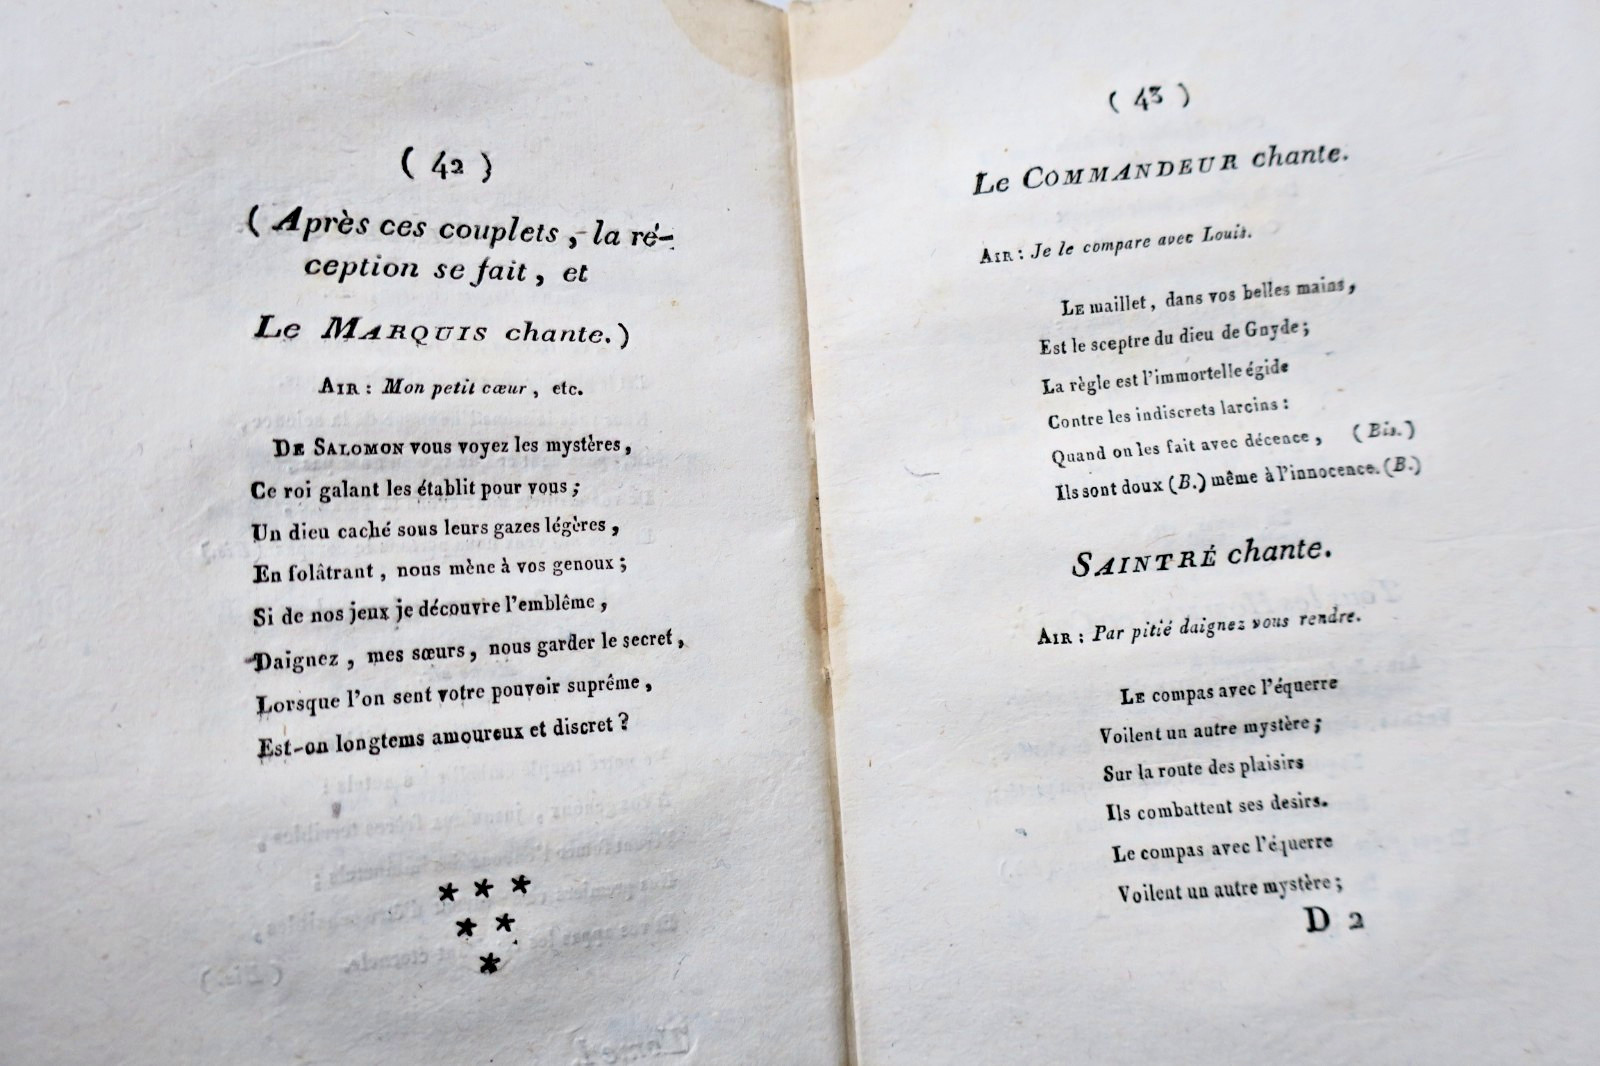 ( 42 )
( Après ces couplets, la ré-
ception se fait, et
Le MARQUIS chante.)
AIR : Mon petit cœur, etc.
DE SALOMON vous voyez les mystères,
Ce roi galant les établit pour vous ;
Un dieu caché sous leurs gazes légères,
En folâtrant, nous mène à vos genoux ;
Si de nos jeux je découvre l'emblême,
Daignez, mes sœurs, nous garder le secret,
Lorsque l'on sent votre pouvoir suprême,
Est-on longtems amoureux et discret ?
* * *
* *
*
( 43 )
Le COMMANDEUR chante.
AIR : Je le compare avec Louis.
LE maillet, dans vos belles mains,
Est le sceptre du dieu de Gnyde ;
La règle est l'immortelle égide
Contre les indiscrets larcins :
Quand on les fait avec décence, (Bis.)
Ils sont doux (B.) même à l'innocence. (B.)
SAINTRÉ chante.
AIR : Par pitié daignez vous rendre.
LE compas avec l'équerre
Voilent un autre mystère ;
Sur la route des plaisirs
Ils combattent ses desirs.
Le compas avec l'équerre
Voilent un autre mystère ;
D 2